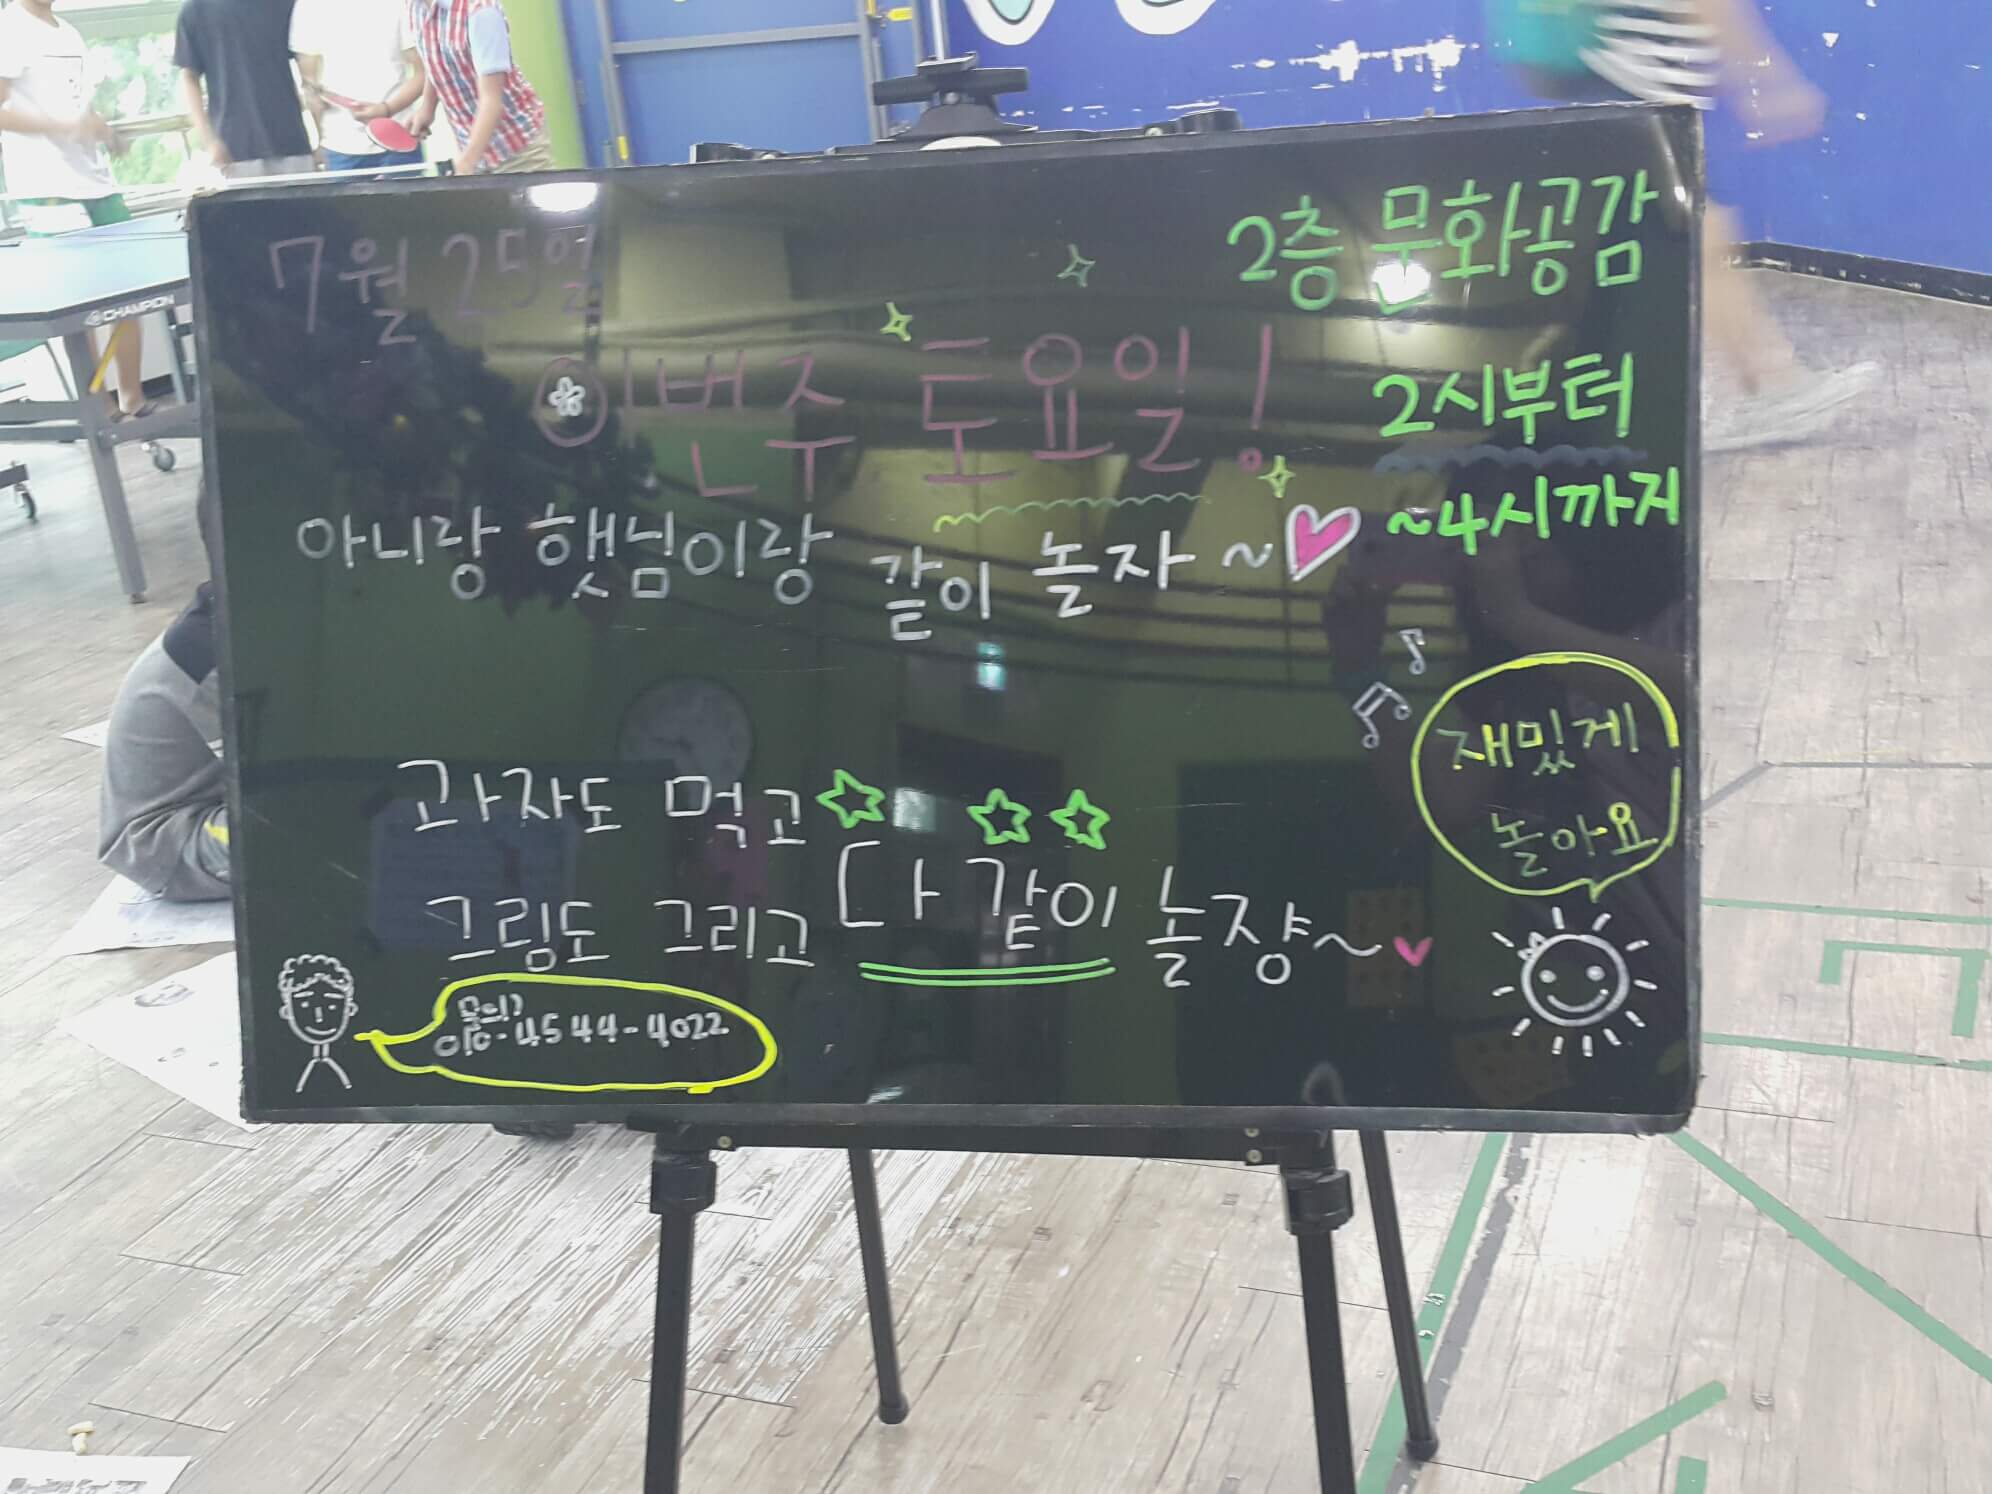 7월 25일
2층 문화공감
이번주 토요일!
2시부터
~4시까지
아니랑 햇님이랑 같이 놀자~
재밌게
놀아요
과자도 먹고
그림도 그리고 다 같이 놀쟝~
문의)
010-4544-4022
CHAMPION